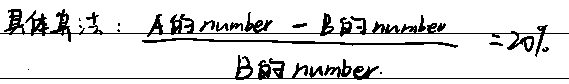 具体算法：A的number - B的number = 20%
B的number.